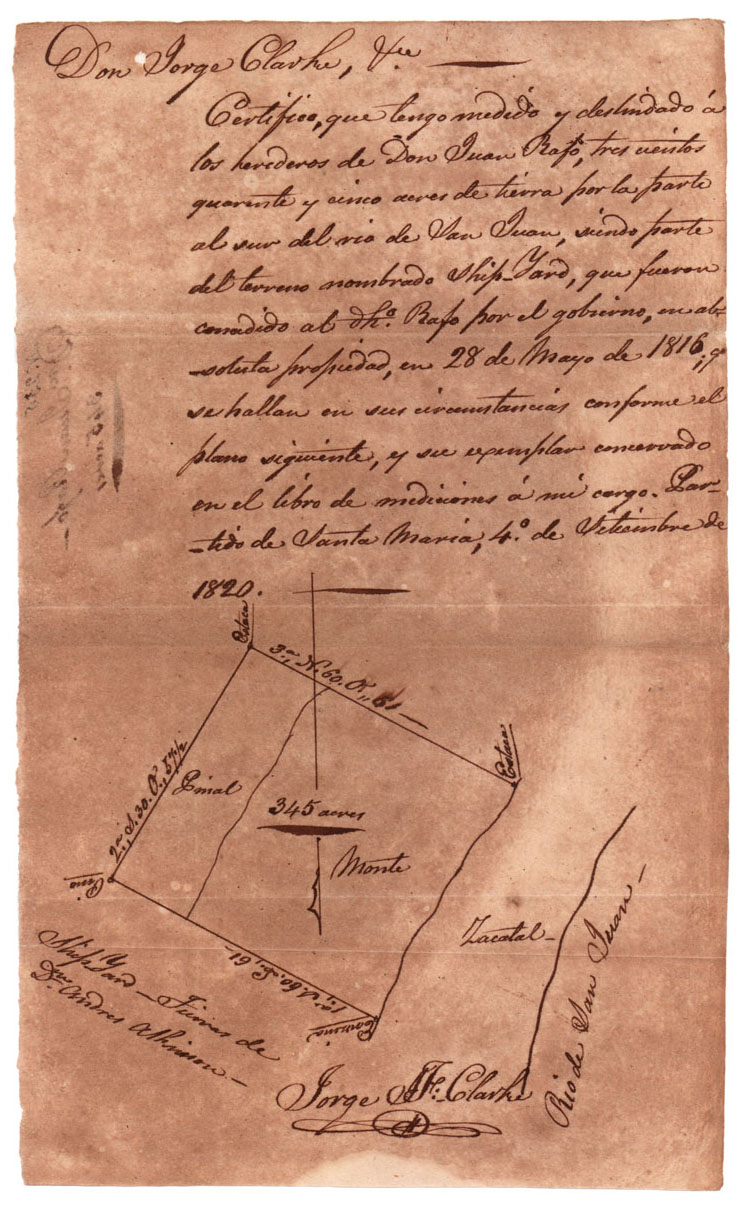 Don Jorge Clarke, &ca.
Certifico, que tengo medido y deslindado á
los herederos de Don Juan Rafo, tres cientos
quarente y cinco acres de tierra por la parte
al sur del rio de San Juan, siendo parte
del terreno nombrado Ship-Yard, que fueron
concedido al dho. Rafo por el gobierno, en ab-
-soluta propiedad, en 28 de Mayo de 1816, y
se hallan en sus circunstancias conforme el
plano siguiente, y su exemplar concervado
en el libro de mediciones á mi cargo. Par-
-tido de Santa Maria, 4º. de Setiembre de
1820.
Estaca
3a. N. 60. O. 61
Estaca
2a. S. 30. O. 57 1/2
Pinal
345 acres
Monte
Pino
Zacatal
1a. S. 60. E. 61
Ship Yard - Tierras de
Dn. Andres Atkinson
Rio de San Juan
Jorge J. F. Clarke